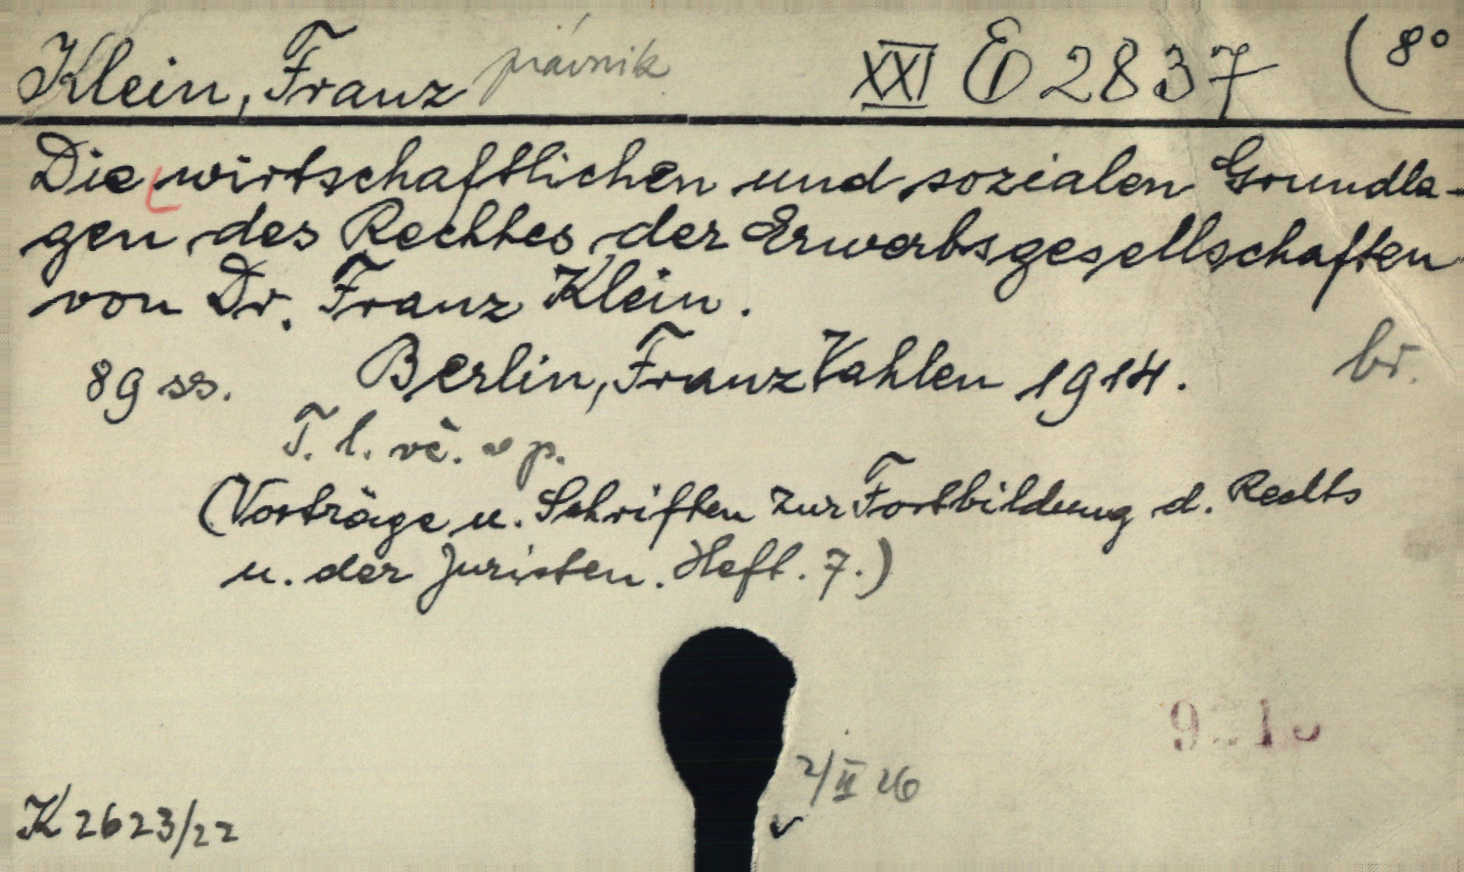 Klein, Franz právnik XXI E 2837 (8°
Die wirtschaftlichen und sozialen Grundla-
gen des Rechtes der Erwerbsgesellschaften
von Dr. Franz Klein.
89 ss. Berlin, Franz Vahlen 1914. br.
T. l. vč. v p.
(Vorträge u. Schriften zur Fortbildung d. Rechts
u. der Juristen. Heft. 7.)
2/II 26
K 2623/22